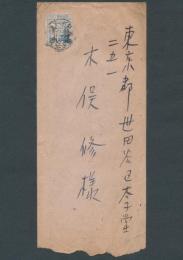 東京都世田谷区太子堂
二五一
木俣修様